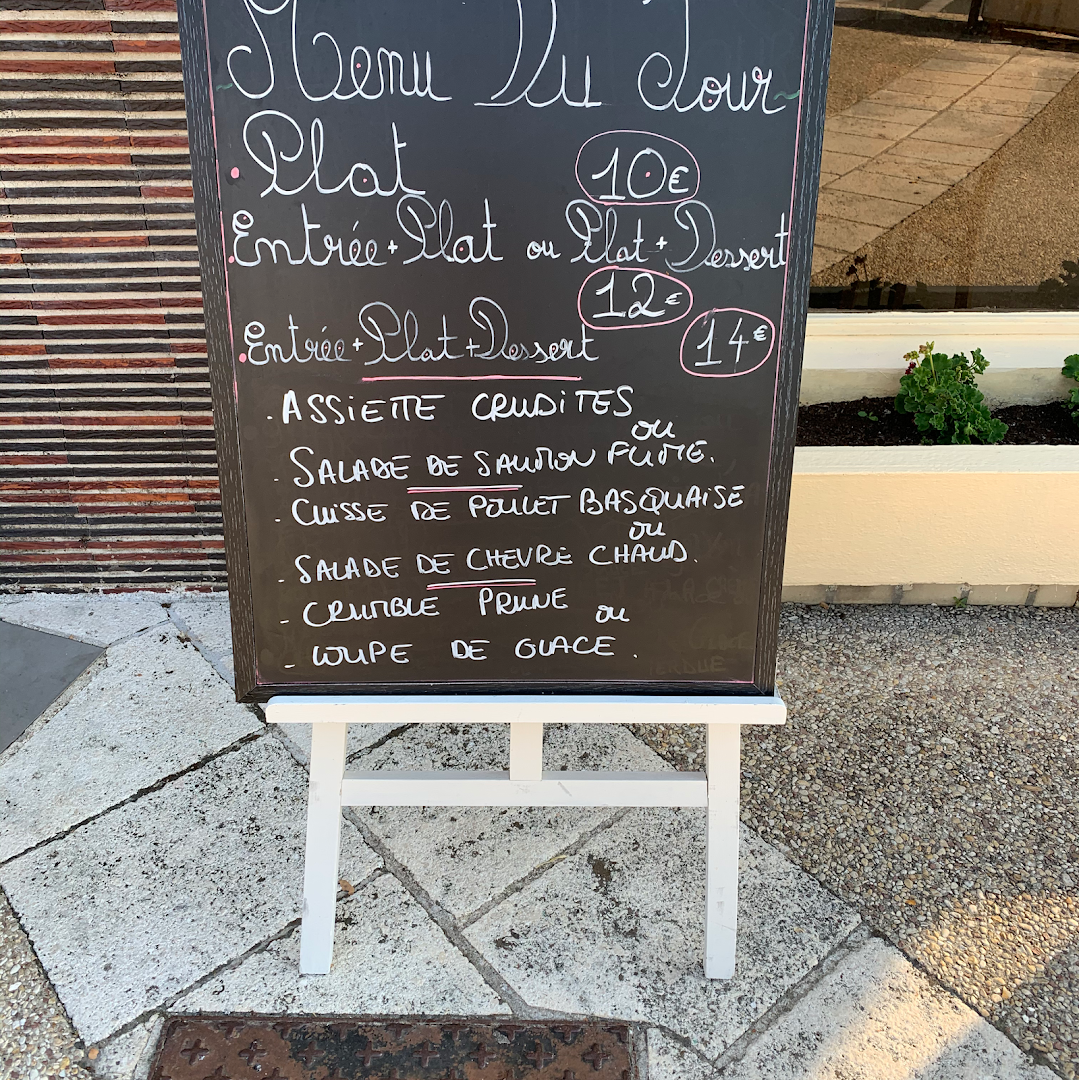 Menu Du Jour
Plat 10€
Entrée + Plat ou Plat + Dessert
12€
Entrée + Plat + Dessert 14€
. ASSIETTE CRUDITES
ou
. SALADE DE SAUMON FUMÉ.
. CUISSE DE POULET BASQUAISE
ou
. SALADE DE CHEVRE CHAUD.
- CRUMBLE PRUNE ou
- COUPE DE GLACE.